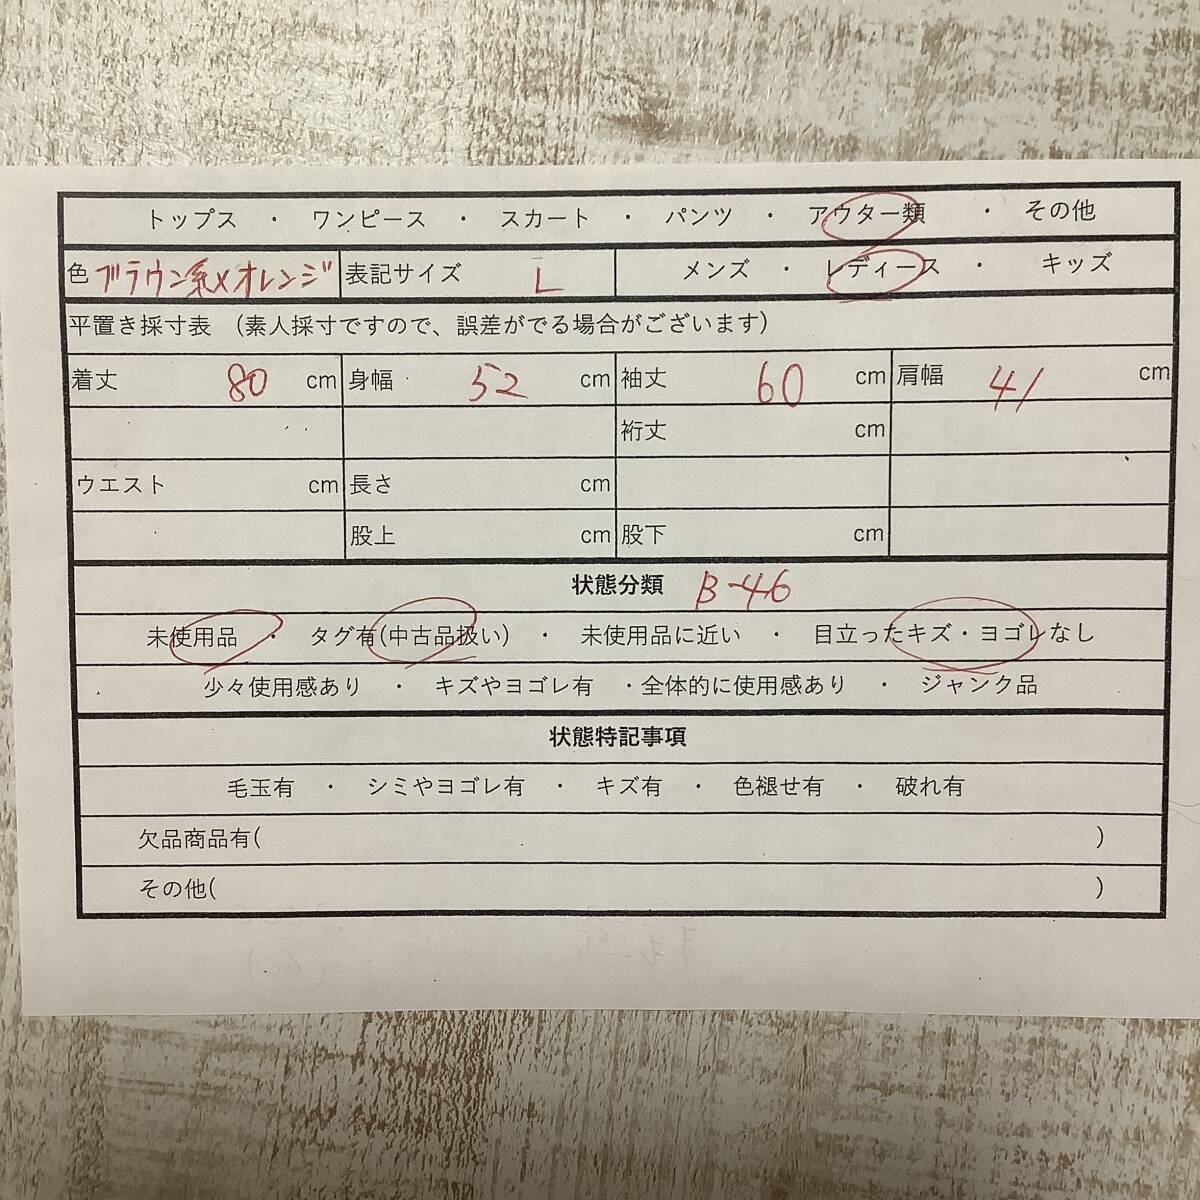 トップス ・ ワンピース ・ スカート ・ パンツ ・ アウター類 ・ その他
色 ブラウン系×オレンジ 表記サイズ L メンズ ・ レディース ・ キッズ
平置き採寸表 (素人採寸ですので、誤差がでる場合がございます)
着丈 80 cm 身幅 52 cm 袖丈 60 cm 肩幅 41 cm
裄丈 cm
ウエスト cm 長さ cm
股上 cm 股下 cm
状態分類 B-46
未使用品 ・ タグ有(中古品扱い) ・ 未使用品に近い ・ 目立ったキズ・ヨゴレなし
少々使用感あり ・ キズやヨゴレ有 ・全体的に使用感あり ・ ジャンク品
状態特記事項
毛玉有 ・ シミやヨゴレ有 ・ キズ有 ・ 色褪せ有 ・ 破れ有
欠品商品有( )
その他( )